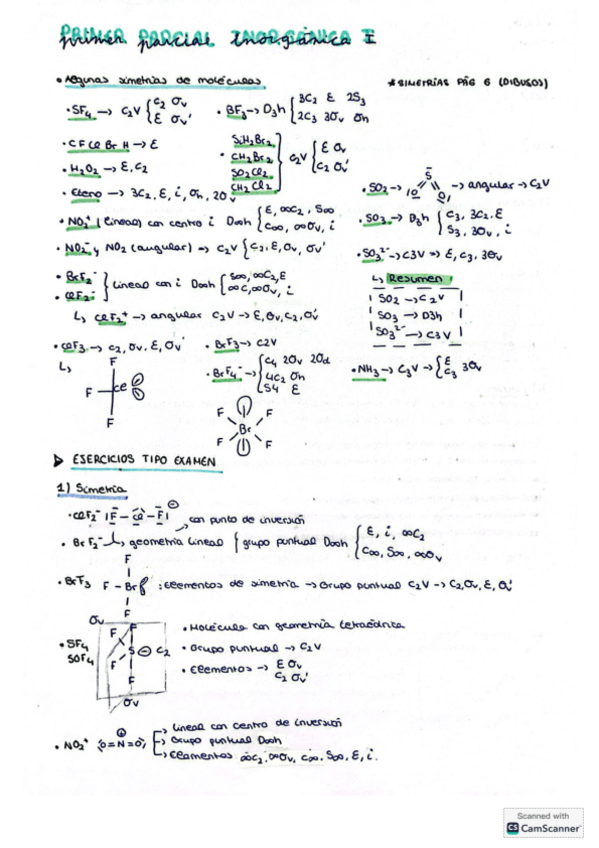 PRIMER PARCIAL INORGÁNICA I
• Algunas simetrías de moléculas
* SIMETRÍAS PÁG 6 (DIBUJOS)
• SF4 → C2V { C2 σv
E σv'
• BF3 → D3h { 3C2 E 2S3
2C3 3σv σh
• CFClBrH → E
• H2O2 → E, C2
• Eteno → 3C2, E, i, σh, 2σv
• SiH2Br2
CH2Br2
SO2Cl2
CH2Cl2
} C2V { E σv
C2 σv'
• SO2 → angular → C2V
S
O O
• NO2+ (lineal) con centro i D∞h { E, ∞C2, S∞
C∞, ∞σv, i
• SO3 → D3h { C3, 3C2, E
S3, 3σv, i
• NO2- y NO2 (angular) → C2V { C2, E, σv, σv'
• SO3²- → C3V → E, C3, 3σv
• BrF2-
• ClF2-
} Lineal con i D∞h { S∞, ∞C2, E
∞C, ∞σv, i
↳ Resumen
SO2 → C2V
SO3 → D3h
SO3²- → C3V
↳ ClF2+ → angular C2V → E, σv, C2, σv'
• ClF3 → C2, σv, E, σv'
• BrF3 → C2V
• BrF4- → { C4 2σv 2σd
4C2 σh
S4 E
• NH3 → C3V → { E
C3 3σv
F
F Cl
F
F F
Br
F F
▷ EJERCICIOS TIPO EXAMEN
1) Simetría
• ClF2- |F - Cl - F| ⊖
→ con punto de inversión
• BrF2- ↳ geometría lineal { grupo puntual D∞h { E, i, ∞C2
C∞, S∞, ∞σv
• BrF3 F - Br : Elementos de simetría → Grupo puntual C2V → C2, σv, E, σv'
F
F
• SF4
SOF4
σv
F F
F S C2
F
σv
• Molécula con geometría tetraédrica
• Grupo puntual → C2V
• Elementos → E σv
C2 σv'
• NO2+ O=N=O ⊕
→ Lineal con centro de inversión
→ Grupo puntual D∞h
→ Elementos ∞C2, ∞σv, C∞, S∞, E, i.
Scanned with
CS CamScanner